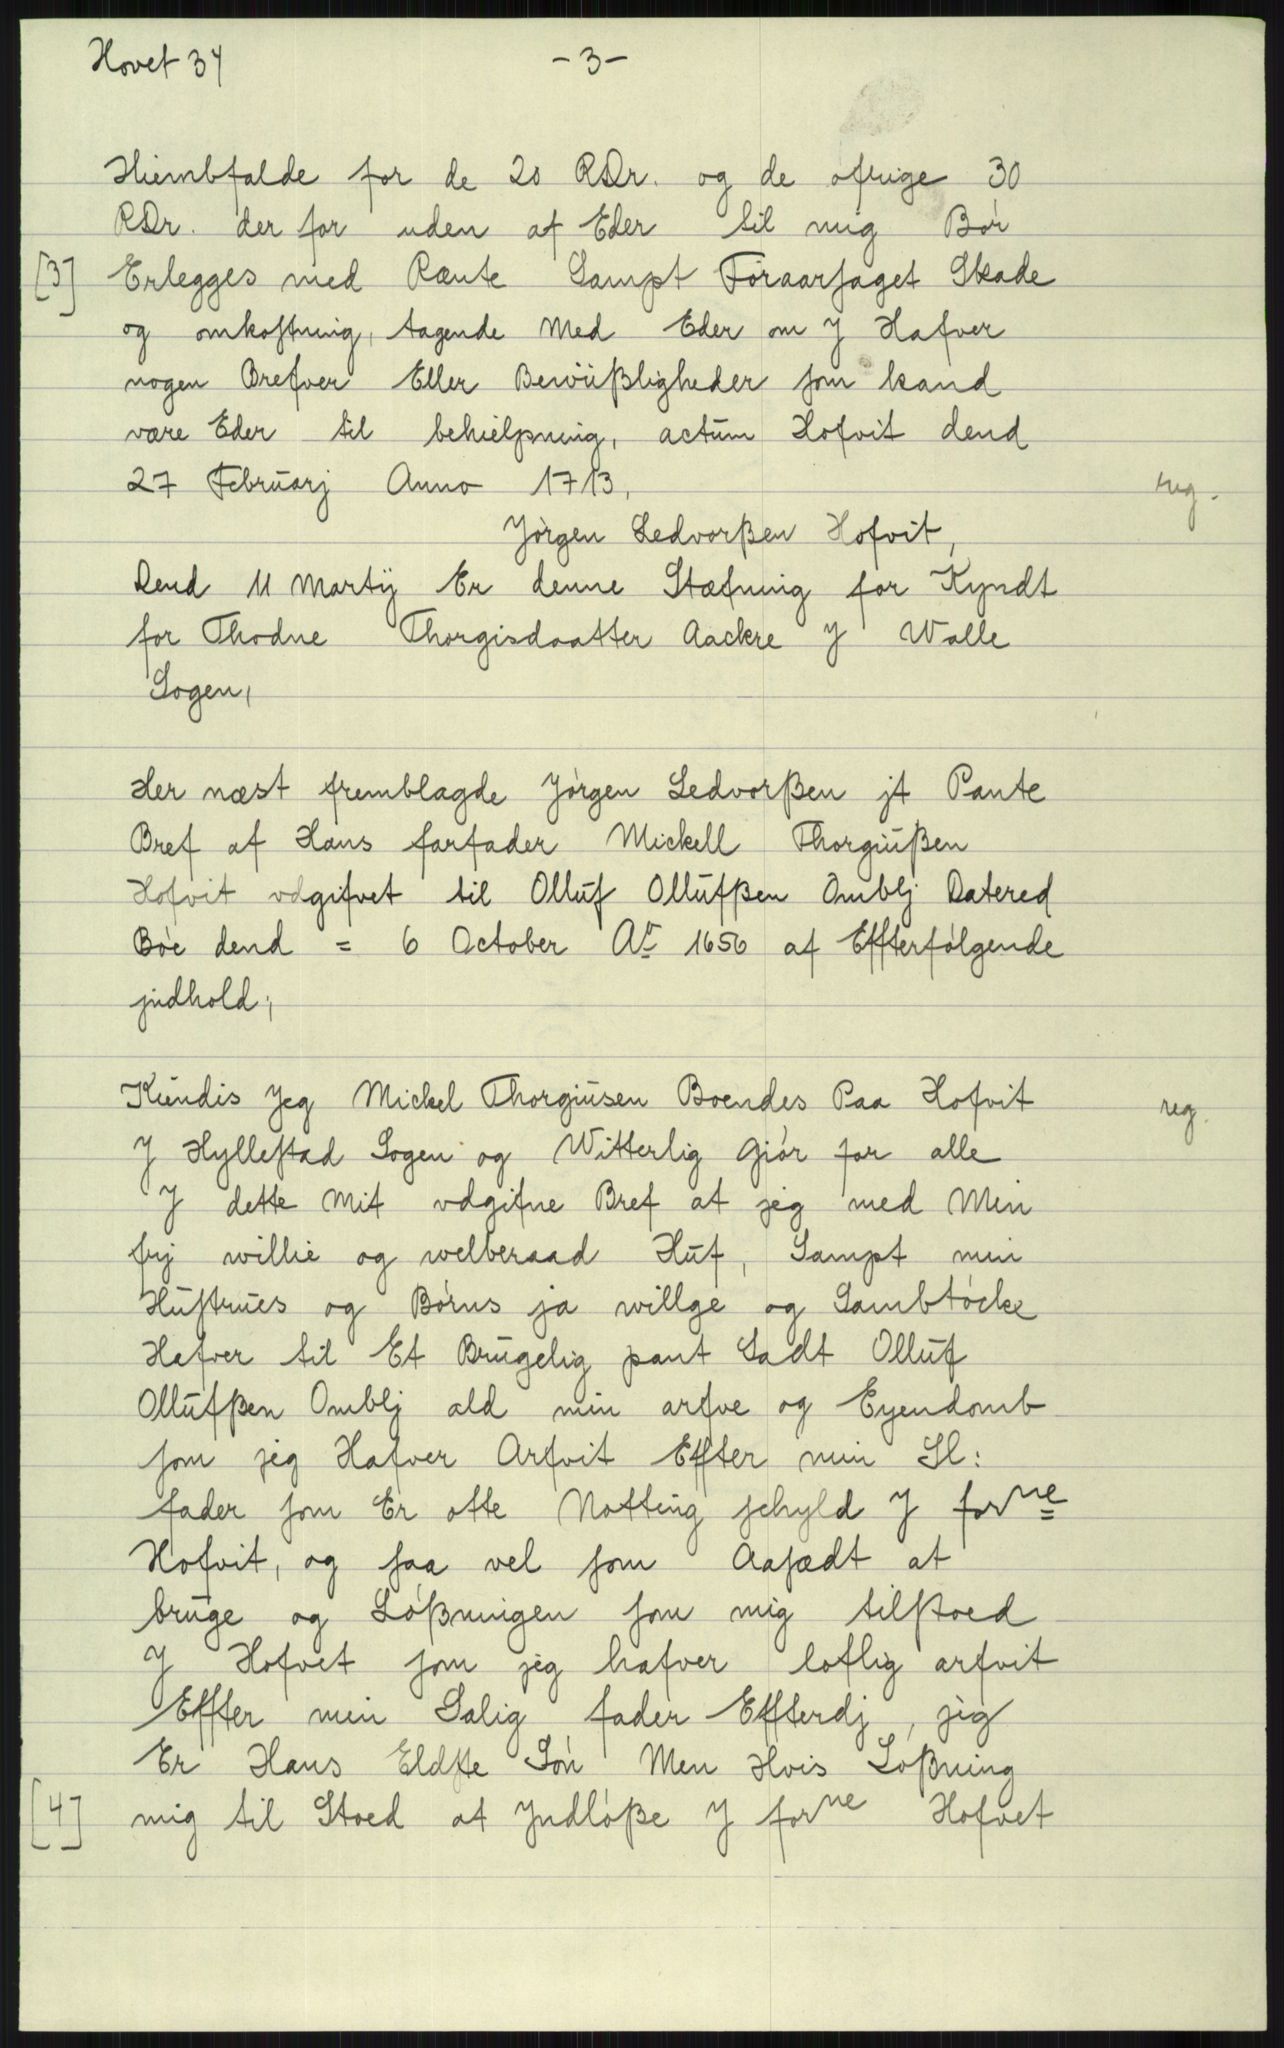 Hovet 34
- 3 -
Hiembfalde for de 20 RDr. og de ofrige 30
RDr. der for uden af Eder til mig Bör
[3] Erlegges med Rænte Sampt Foraarsaget Skade
og omkostning, tagende Med Eder om J Hafver
nogen Brefver Eller Bewüßligheder som kand
være Eder til behielpning, actum Hofvit dend
27 Februarj Anno 1713, reg.
Jörgen Sedvorßen Hofvit,
Dend 11 Martij Er denne Stæfning for Kyndt
for Thodne Thorgisdaatter Aackre J Walle
Sogen,
Her næst fremblagde Jörgen Sedvorßen jt Pante
Bref af Hans farfader Mickell Thorgiußen
Hofvit vdgifvet til Olluf Ollufßen Omblj Datered
Böe dend = 6 October Ao 1656 af Effterfölgende
jndhold,
Kiendis Jeg Mickel Thorgiusen Boendes Paa Hofvit reg.
J Hyllestad Sogen og Witterlig Giör for alle
J dette Mit vdgifne Bref at jeg med Min
frj willie og welberaad Huf, Sampt min
Hustrues og Börns ja willge og Sambtöcke
Hafver til Et Brugelig pant Sadt Olluf
Ollufßen Omblj ald min arfve og Eyendomb
som jeg Hafver Arfvit Effter min Sl:
fader som Er otte Notting schyld J forne
Hofvit, og saa vel som Aasædt at
bruge og Lößningen som mig tilstoed
J Hofvet som jeg hafver loflig arfvit
Effter min Salig fader Effterdj, jeg
Er Hans Eldste Sön Men Hvis Lößning
[4] mig til Stoed at Jndlöße J forne Hofvet